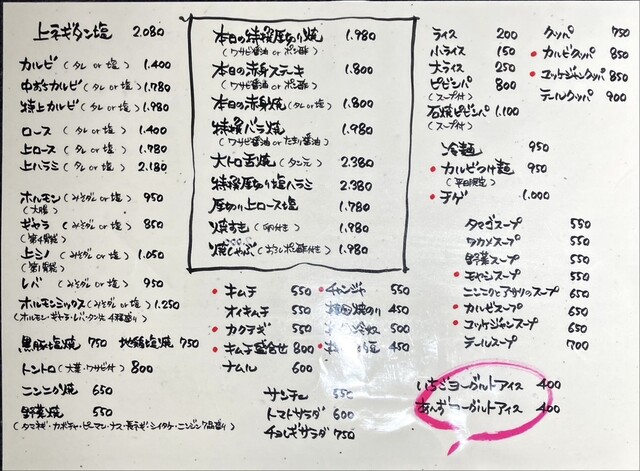 上ネギタン塩 2.080
カルビ（タレ or 塩） 1.400
中おちカルビ（タレ or 塩） 1.780
特上カルビ（タレ or 塩） 1.980
ロース（タレ or 塩） 1.400
上ロース（タレ or 塩） 1.780
上ハラミ（タレ or 塩） 2.180
ホルモン（みそダレ or 塩） 950
（大腸）
ギャラ（みそダレ or 塩） 850
（第4胃袋）
上ミノ（みそダレ or 塩） 1.050
（第1胃袋）
レバ（みそダレ or 塩） 950
ホルモンミックス（みそダレ or 塩） 1.250
（ホルモン・ギャラ・レバ・タン先 4種盛り）
黒豚塩焼 750 地鶏塩焼 750
トントロ（大葉・ワサビ付） 800
ニンニク焼 650
野菜焼 550
（タマネギ・カボチャ・ピーマン・ナス・長ネギ・シイタケ・ニンジン 7品盛り）
本日の特撰厚切り焼 1.980
（ワサビ醤油 or ポン酢）
本日の赤身ステーキ 1.800
（ワサビ醤油 or ポン酢）
本日の赤身焼（タレ or 塩） 1.800
特撰バラ焼 1.980
（ワサビ醤油 or たまり醤油）
大トロ舌焼（タン元） 2.380
特撰厚切り塩ハラミ 2.380
厚切り上ロース塩 1.780
焼すき（卵付き） 1.980
焼しゃぶ（おろしポン酢付き） 1.980
キムチ 550
オイキムチ 550
カクテギ 550
キムチ盛合せ 800
ナムル 600
チャンジャ 550
焼のり 450
500
450
サンチュ 550
トマトサラダ 600
チョレギサラダ 750
ライス 200
小ライス 150
大ライス 250
ビビンバ 800
（スープ付）
石焼ビビンバ 1.100
（スープ付）
クッパ 750
カルビクッパ 850
ユッケジャンクッパ 850
テールクッパ 900
冷麺 950
カルビつけ麺 950
（平日限定）
チゲ 1.000
タマゴスープ 550
ワカメスープ 550
野菜スープ 550
モヤシスープ 550
ニンニクとアサリのスープ 650
カルビスープ 650
ユッケジャンスープ 650
テールスープ 700
いちごヨーグルトアイス 400
あんずヨーグルトアイス 400